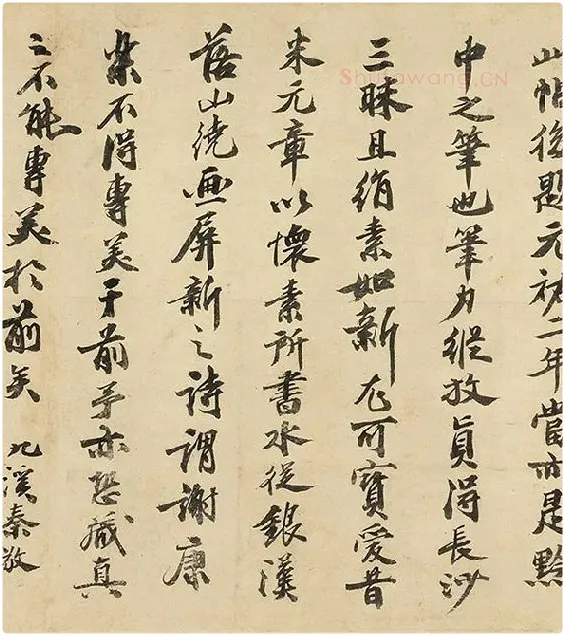 此帖後題元祐二年當亦是黔
中之筆也筆力縱放真得長沙
三昧且絹素如新尤可寶愛昔
米元章以懷素所書水從銀漢
落山繞画屏新之詩謂謝康
樂不得專美于前予亦恐藏真
之不能專美於前矣 九溪秦敬
Shufawang.CN